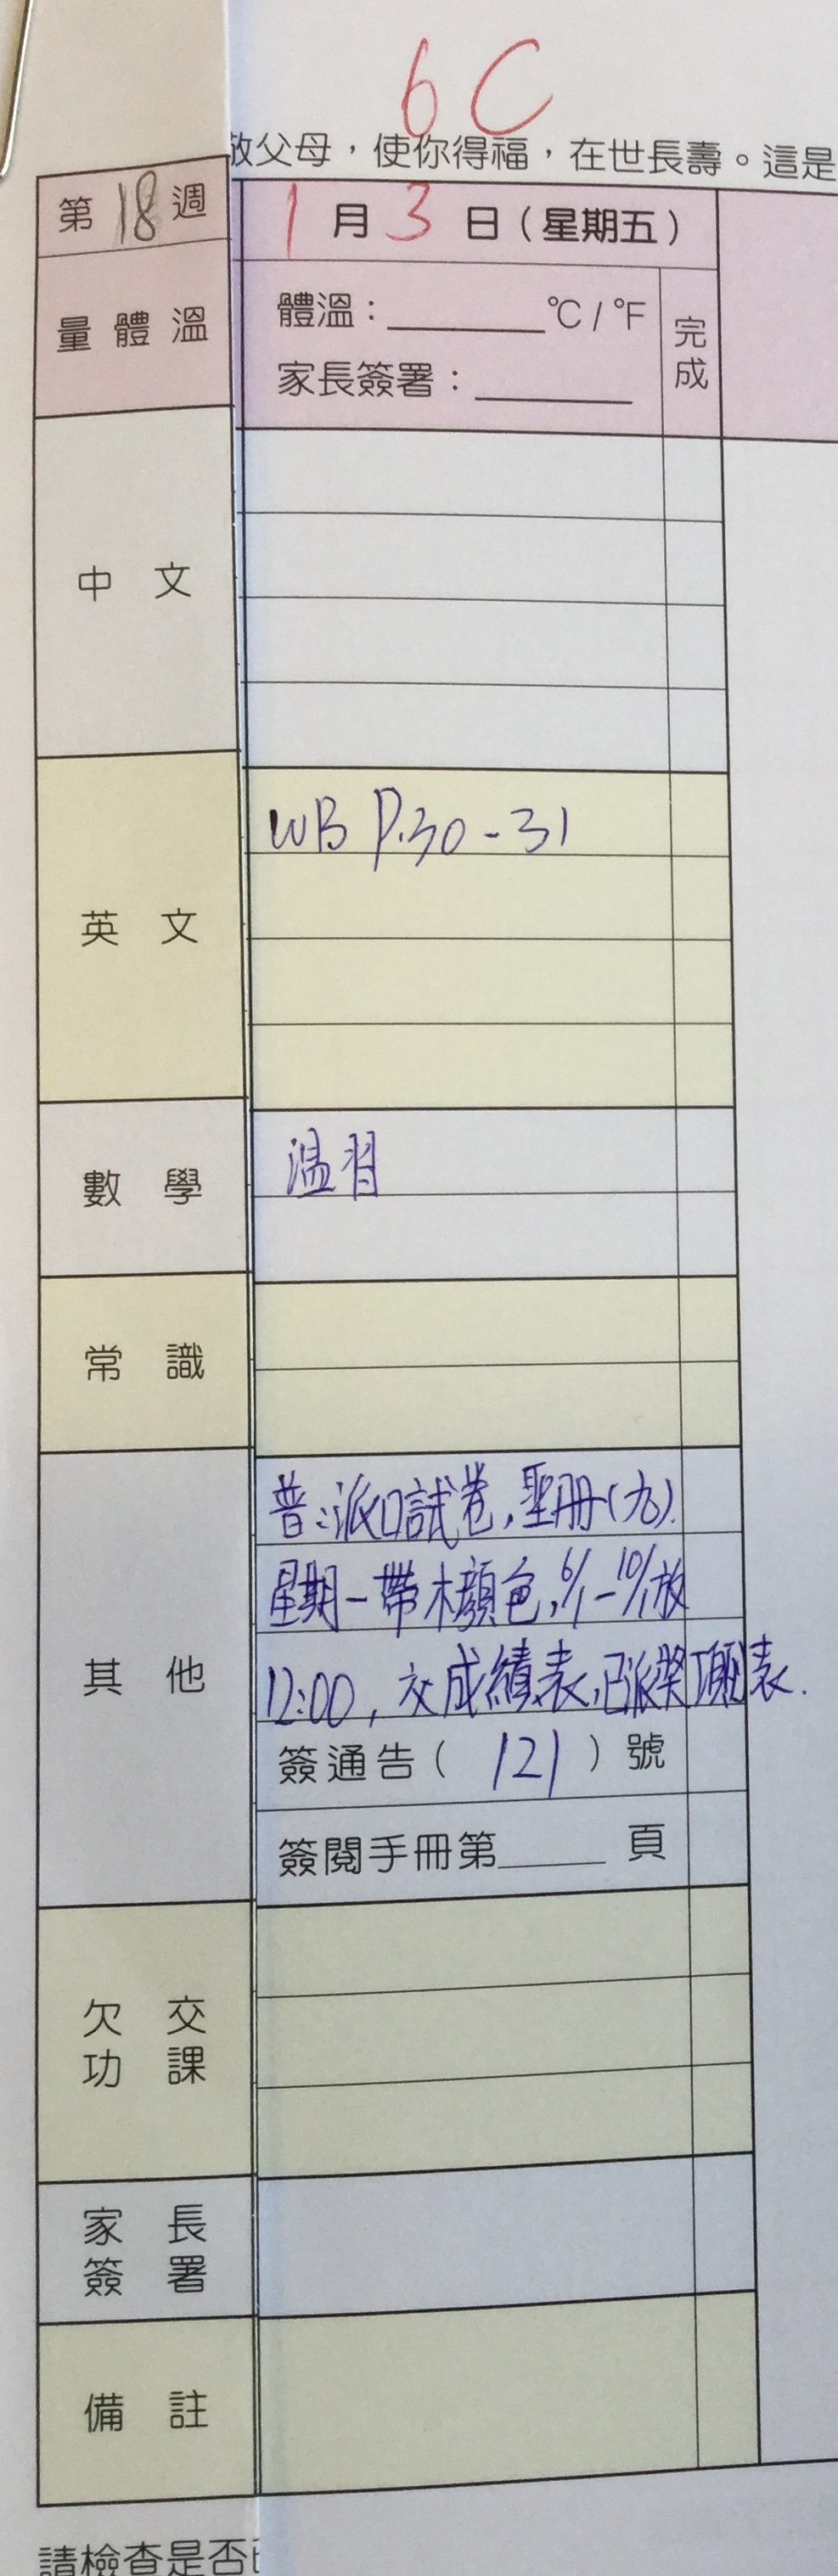 6C
敬父母，使你得福，在世長壽。這是
第18週
1月3日（星期五）
量體溫
體溫：______°C / °F
家長簽署：______
完成
中文
英文
WB P.30-31
數學
温習
常識
其他
普:派口試卷,聖冊(九).
星期一帶木顏色,6/1-10/1放
12:00,交成績表,已派獎項表.
簽通告（121）號
簽閱手冊第______頁
欠交功課
家長簽署
備註
請檢查是否已